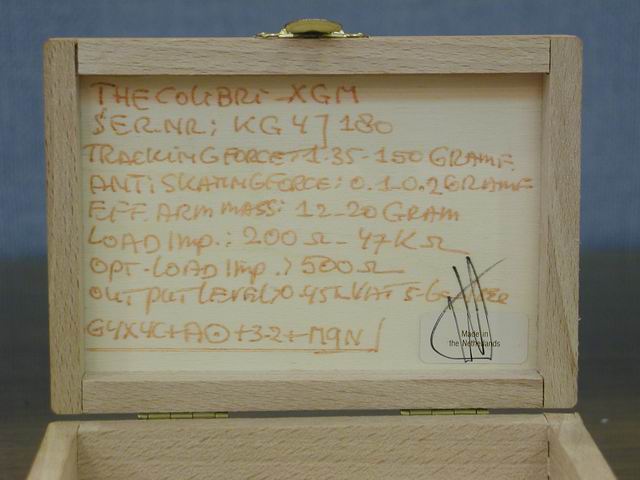 THE COLIBRI-XGM
SER.NR: KG 47 180
TRACKING FORCE: 1.35-1.50 GRAM
ANTI SKATING FORCE: 0.1-0.2 GRAM
EFF. ARM MASS: 12-20 GRAM
LOAD IMP.: 200 Ω - 47K Ω
OPT-LOAD IMP. > 500 Ω
OUTPUT LEVEL > 0.45
G4X4C+A⊙+3-2+-M9N
Made in
the Netherlands